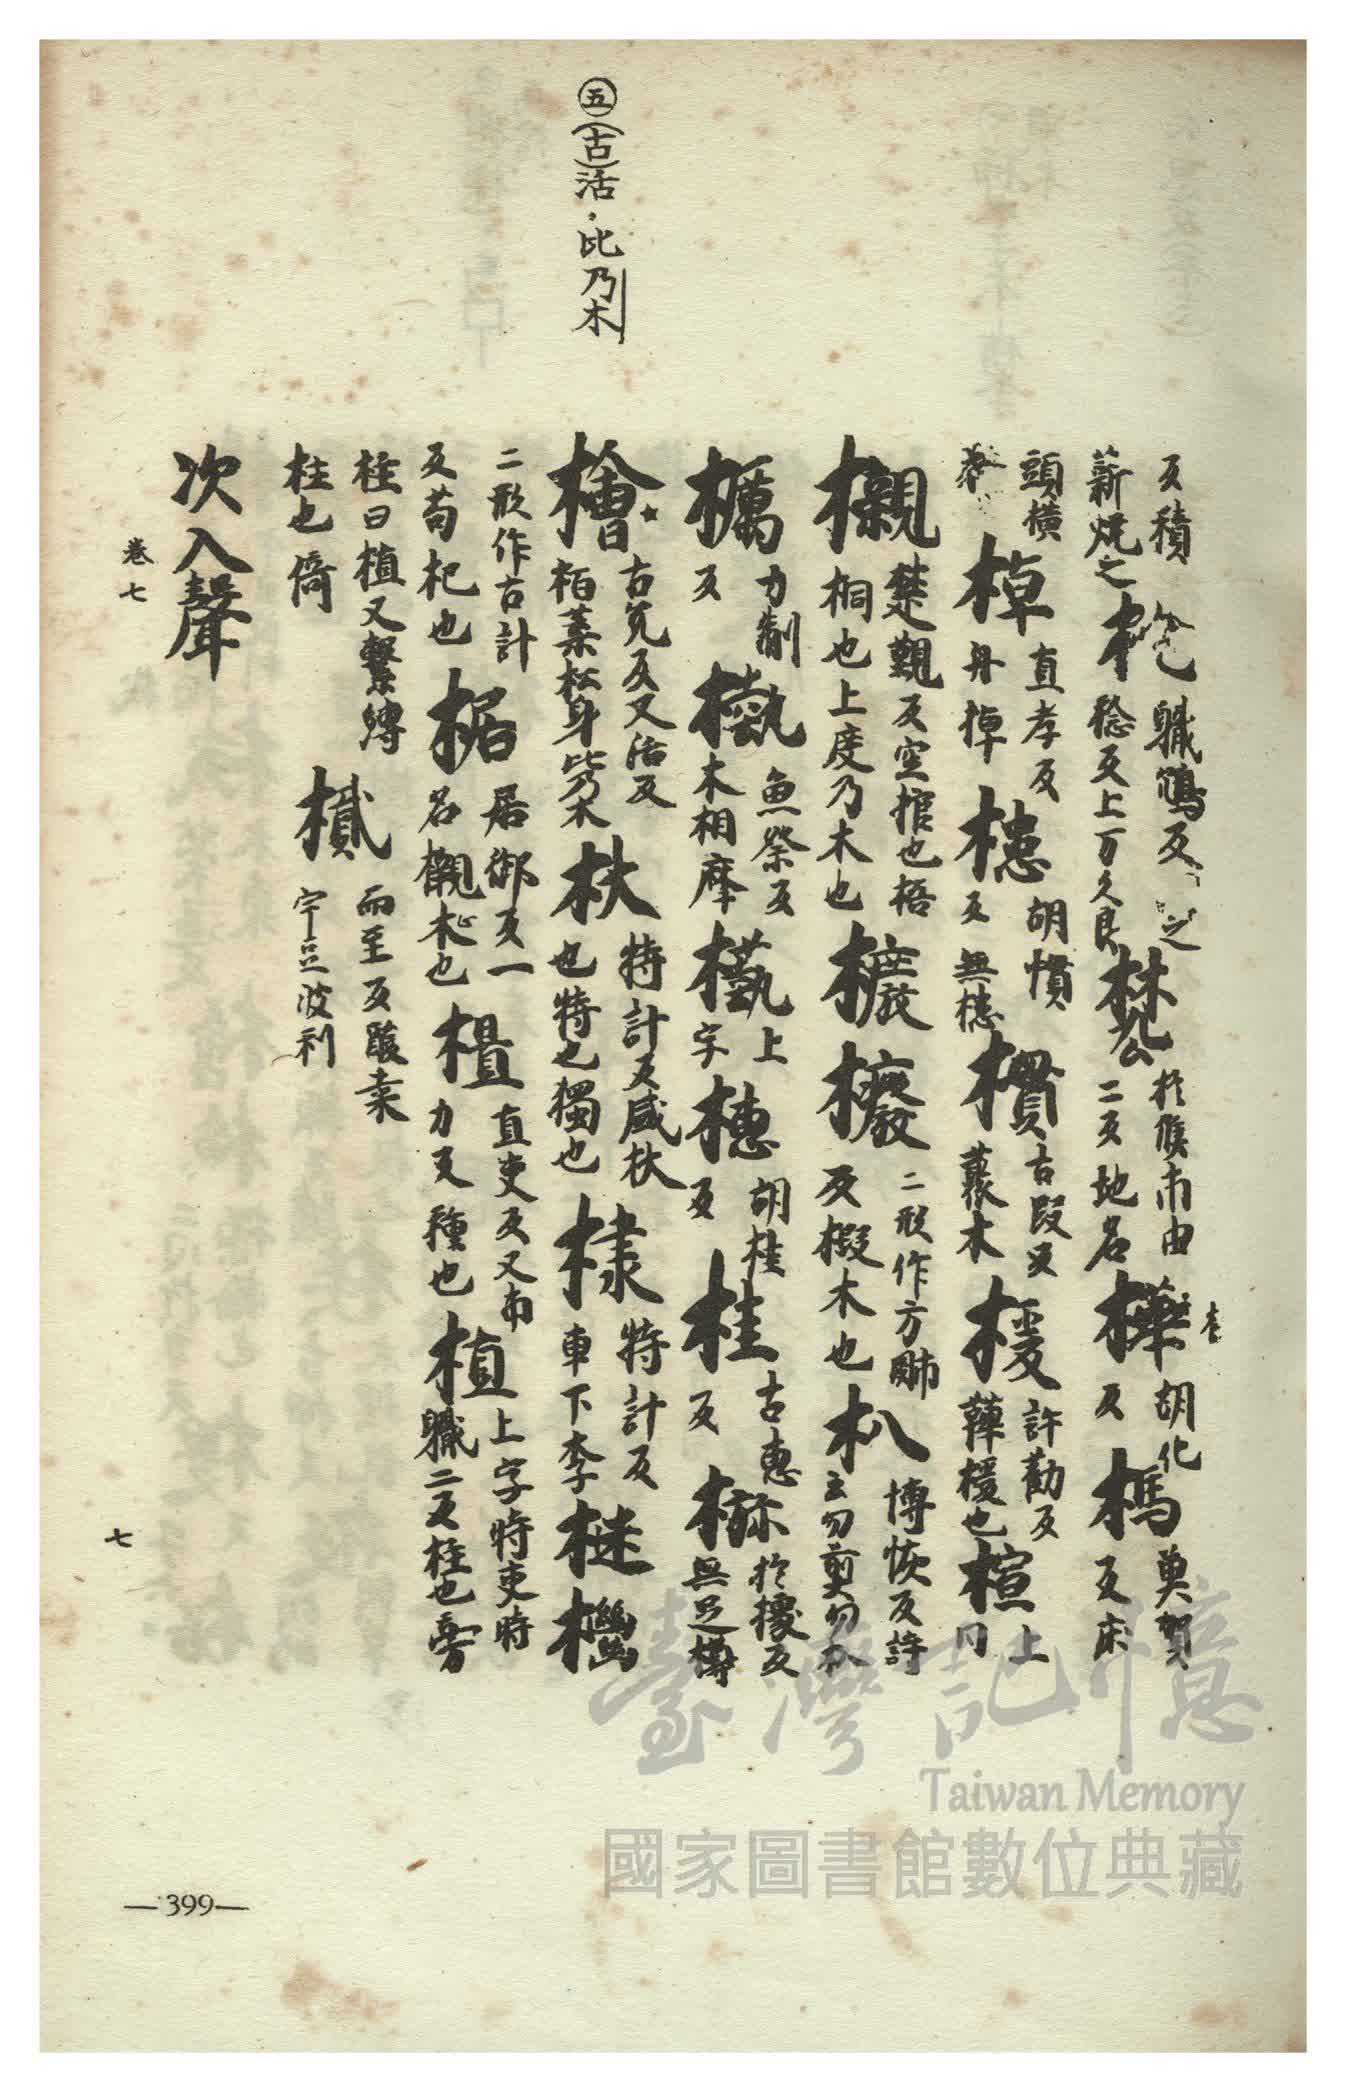 ㊄(古)活·比乃木
反積
薪𤈦之
職鴆反
稔反上万久良
於條市由
二反地名
樺
胡化
反
榪
奠賀
反床
頭橫
棹
直孝反
舟棹
槵
胡慣
反無槵
樌
古段反
叢木
楥
許勸反
鞾楥也
楦
上同
櫬
楚覲反空棺也梧
桐也上度乃木也
橃
二形作方肺
反橃木也
朳
博恢反詩
云勿剪勿朳
櫔
力制
反
槸
魚祭反
木相摩
上
字
橞
胡桂
反
桂
古惠
反
於㯫反
無足樽
檜
古兌反又活反
栢葉松身比乃木
杕
特計反感杕
也特也獨也
棣
特計反
車下李
檖
二形作古計
反苟杞也
椐
居御反一
名櫬㭲也
直吏反又市
力反種也
植
上字時吏時
職二反柱也旁
柱曰植又繫縛
柱也倚
樲
而至反酸棗
宇豆波利
次入聲
卷七
七
—399—
臺灣記憶
Taiwan Memory
國家圖書館數位典藏